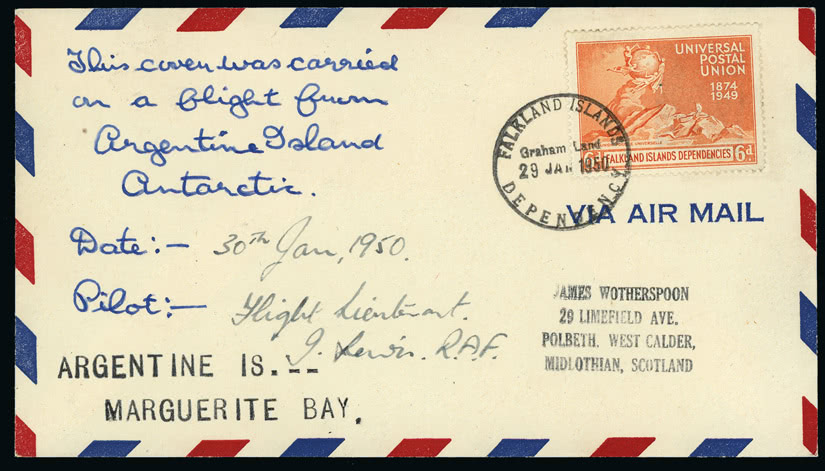 This cover was carried
on a flight from
Argentine Island
Antarctic.
Date:- 30th Jan, 1950.
Pilot:- Flight Lieutenant.
J. Lewis. R.A.F.
ARGENTINE IS.--
MARGUERITE BAY.
UNIVERSAL
POSTAL
UNION
1874
1949
FALKLAND ISLANDS DEPENDENCIES 6d.
FALKLAND ISLANDS
Graham Land
29 JAN 1950
DEPENDENCY
VIA AIR MAIL
JAMES WOTHERSPOON
29 LIMEFIELD AVE.
POLBETH. WEST CALDER,
MIDLOTHIAN, SCOTLAND